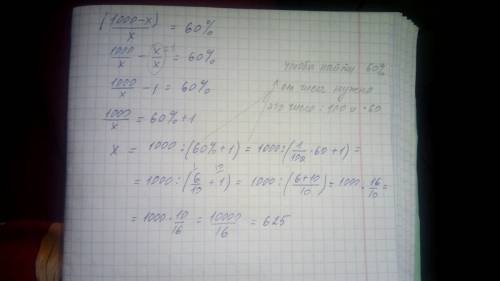 (1000-x)/x = 60%
1000/x - x/x = 60%
1000/x - 1 = 60%
1000/x = 60% + 1
чтобы найти 60%
от числа нужно
это число : 100 и · 60
x = 1000 : (60% + 1) = 1000 : (1/100 · 60 + 1) =
= 1000 : (6/10 + 1) = 1000 : (6+10/10) = 1000 · 16/10 =
= 1000 · 10/16 = 10000/16 = 625